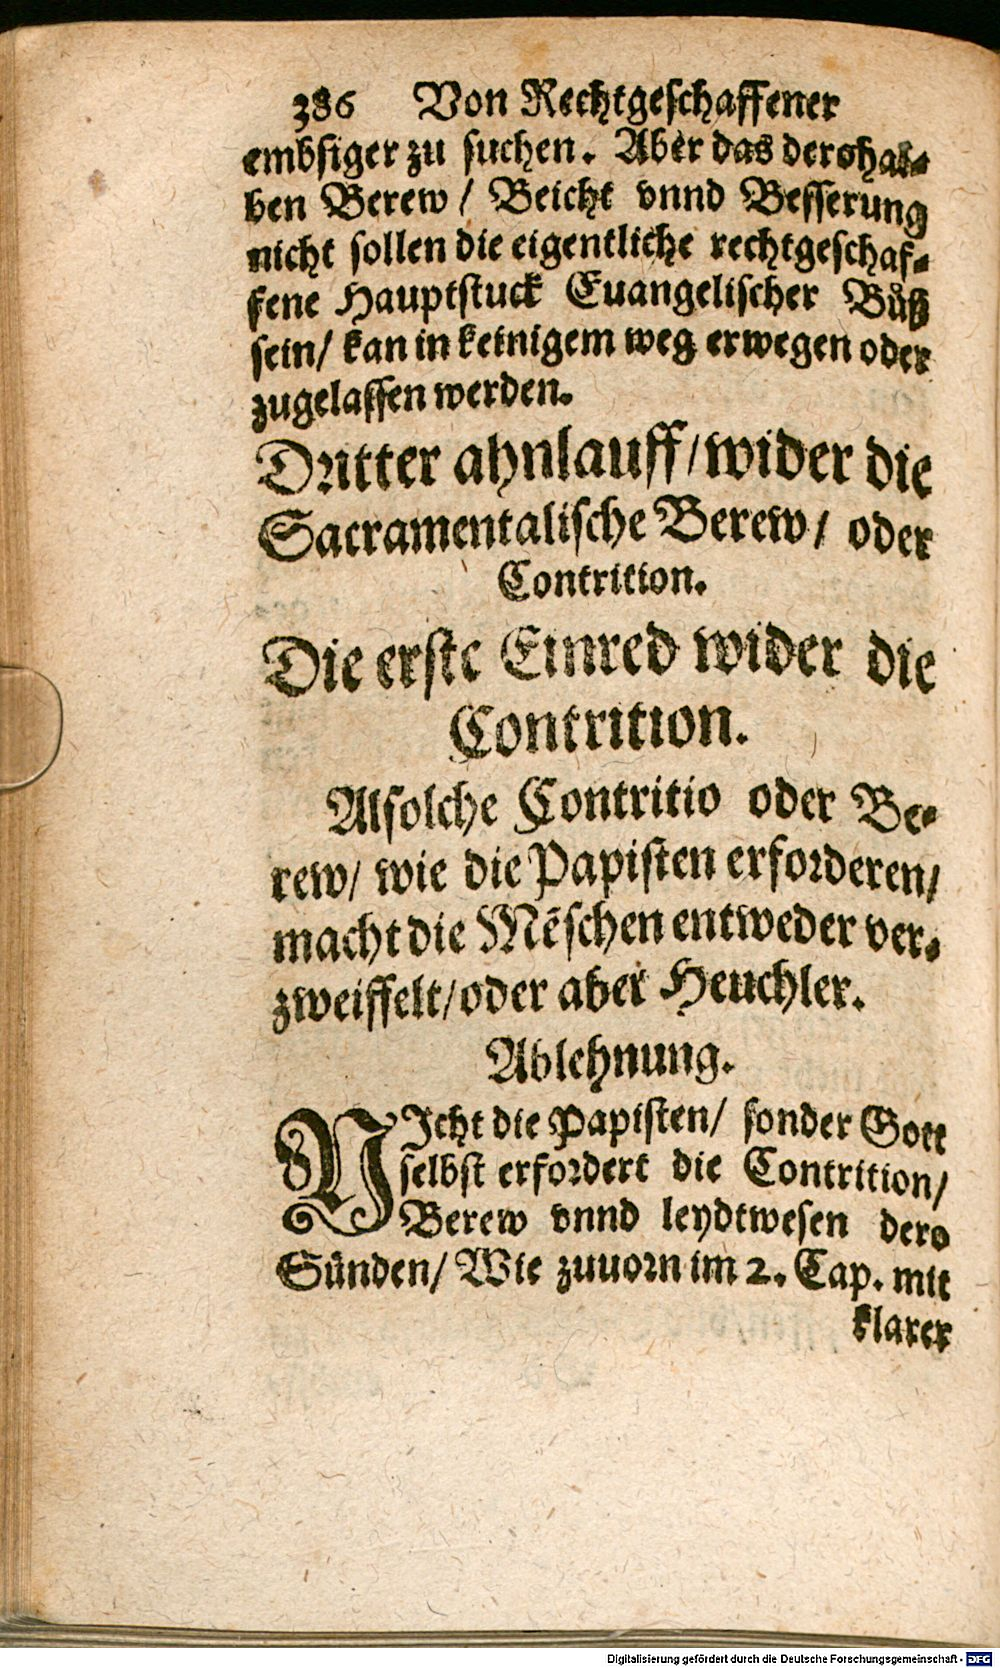 386 Von Rechtgeschaffener
embsiger zu suchen. Aber das derohal⸗
ben Berew / Beicht vnnd Besserung
nicht sollen die eigentliche rechtgeschaf⸗
fene Hauptstuck Euangelischer Bůß
sein/ kan in keinigem weg erwegen oder
zugelassen werden.
Dritter ahnlauff/ wider die
Sacramentalische Berew / oder
Contrition.
Die erste Einred wider die
Contrition.
Alsolche Contritio oder Be⸗
rew/ wie die Papisten erforderen/
macht die Mẽschen entweder ver⸗
zweiffelt/ oder aber Heuchler.
Ablehnung.
NIcht die Papisten/ sonder Gott
selbst erfordert die Contrition/
Berew vnnd leydtwesen dero
Sünden/ Wie zuuorn im 2. Cap. mit
klarer
Digitalisierung gefördert durch die Deutsche Forschungsgemeinschaft - DFG